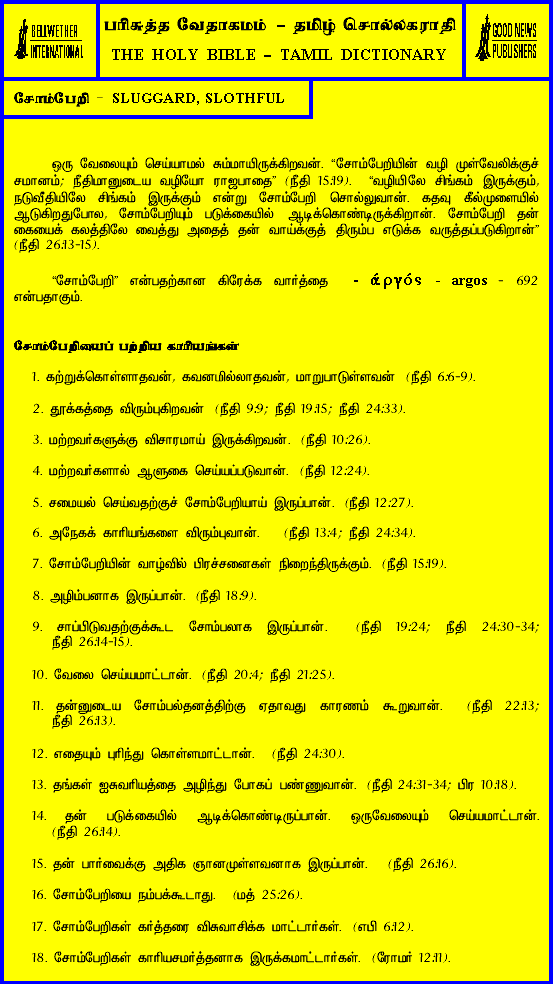 BELLWETHER
INTERNATIONAL
பரிசுத்த வேதாகமம் – தமிழ் சொல்லகராதி
THE HOLY BIBLE – TAMIL DICTIONARY
GOOD NEWS
PUBLISHERS
சோம்பேறி – SLUGGARD, SLOTHFUL
ஒரு வேலையும் செய்யாமல் சும்மாயிருக்கிறவன். “சோம்பேறியின் வழி முள்வேலிக்குச்
சமானம்; நீதிமானுடைய வழியோ ராஜபாதை” (நீதி 15:19). “வழியிலே சிங்கம் இருக்கும்,
நடுவீதியிலே சிங்கம் இருக்கும் என்று சோம்பேறி சொல்லுவான். கதவு கீல்முளையில்
ஆடுகிறதுபோல, சோம்பேறியும் படுக்கையில் ஆடிக்கொண்டிருக்கிறான். சோம்பேறி தன்
கையைக் கலத்திலே வைத்து அதைத் தன் வாய்க்குத் திரும்ப எடுக்க வருத்தப்படுகிறான்”
(நீதி 26:13-15).
“சோம்பேறி” என்பதற்கான கிரேக்க வார்த்தை - άργός - argos - 692
என்பதாகும்.
சோம்பேறியைப் பற்றிய காரியங்கள்
1. கற்றுக்கொள்ளாதவன், கவனமில்லாதவன், மாறுபாடுள்ளவன் (நீதி 6:6-9).
2. தூக்கத்தை விரும்புகிறவன் (நீதி 9:9; நீதி 19:15; நீதி 24:33).
3. மற்றவர்களுக்கு விசாரமாய் இருக்கிறவன். (நீதி 10:26).
4. மற்றவர்களால் ஆளுகை செய்யப்படுவான். (நீதி 12:24).
5. சமையல் செய்வதற்குச் சோம்பேறியாய் இருப்பான். (நீதி 12:27).
6. அநேகக் காரியங்களை விரும்புவான். (நீதி 13:4; நீதி 24:34).
7. சோம்பேறியின் வாழ்வில் பிரச்சனைகள் நிறைந்திருக்கும். (நீதி 15:19).
8. அழிம்பனாக இருப்பான். (நீதி 18:9).
9. சாப்பிடுவதற்குக்கூட சோம்பலாக இருப்பான். (நீதி 19:24; நீதி 24:30-34;
நீதி 26:14-15).
10. வேலை செய்யமாட்டான். (நீதி 20:4; நீதி 21:25).
11. தன்னுடைய சோம்பல்தனத்திற்கு ஏதாவது காரணம் கூறுவான். (நீதி 22:13;
நீதி 26:13).
12. எதையும் புரிந்து கொள்ளமாட்டான். (நீதி 24:30).
13. தங்கள் ஐசுவரியத்தை அழிந்து போகப் பண்ணுவான். (நீதி 24:31-34; பிர 10:18).
14. தன் படுக்கையில் ஆடிக்கொண்டிருப்பான். ஒருவேலையும் செய்யமாட்டான்.
(நீதி 26:14).
15. தன் பார்வைக்கு அதிக ஞானமுள்ளவனாக இருப்பான். (நீதி 26:16).
16. சோம்பேறியை நம்பக்கூடாது. (மத் 25:26).
17. சோம்பேறிகள் கர்த்தரை விசுவாசிக்க மாட்டார்கள். (எபி 6:12).
18. சோம்பேறிகள் காரியசமர்த்தனாக இருக்கமாட்டார்கள். (ரோமர் 12:11).